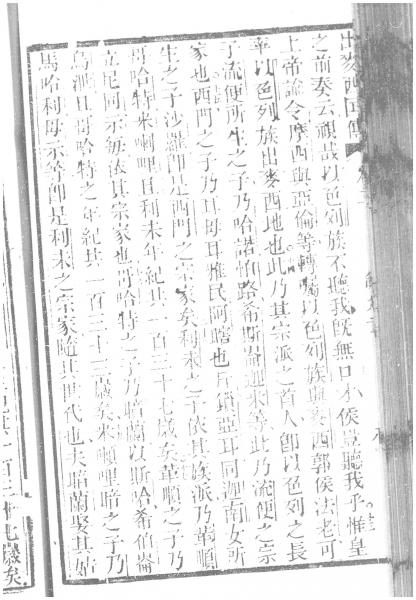 出麥西國傳
之前奏云視哉以色列族不聽我旣無口才侯豈聽我乎惟皇
上帝諭令摩西與亞倫等轉囑以色列族與麥西郭侯法老可
率以色列族出麥西地也此乃其宗派之首人卽以色列之長
子流便所生之子乃哈諾帕路希斯崙迦米等此乃流便之宗
家也西門之子乃耳母耳雅民阿瞎也斤鎖亞耳同迦南女所
生之子沙羅卽是西門之宗家矣利未之子依其族派乃革順
哥哈特米喇哩且利未年紀共一百三十七歲矣革順之子乃
立尼同示每依其宗家也哥哈特之子乃暗蘭以斯哈希伯崙
烏泄且哥哈特之年紀共一百三十三歲矣米喇哩之子乃
馬哈利母示等卽是利未之宗家隨其世代也夫暗蘭娶其姑
共一百三十七歲矣